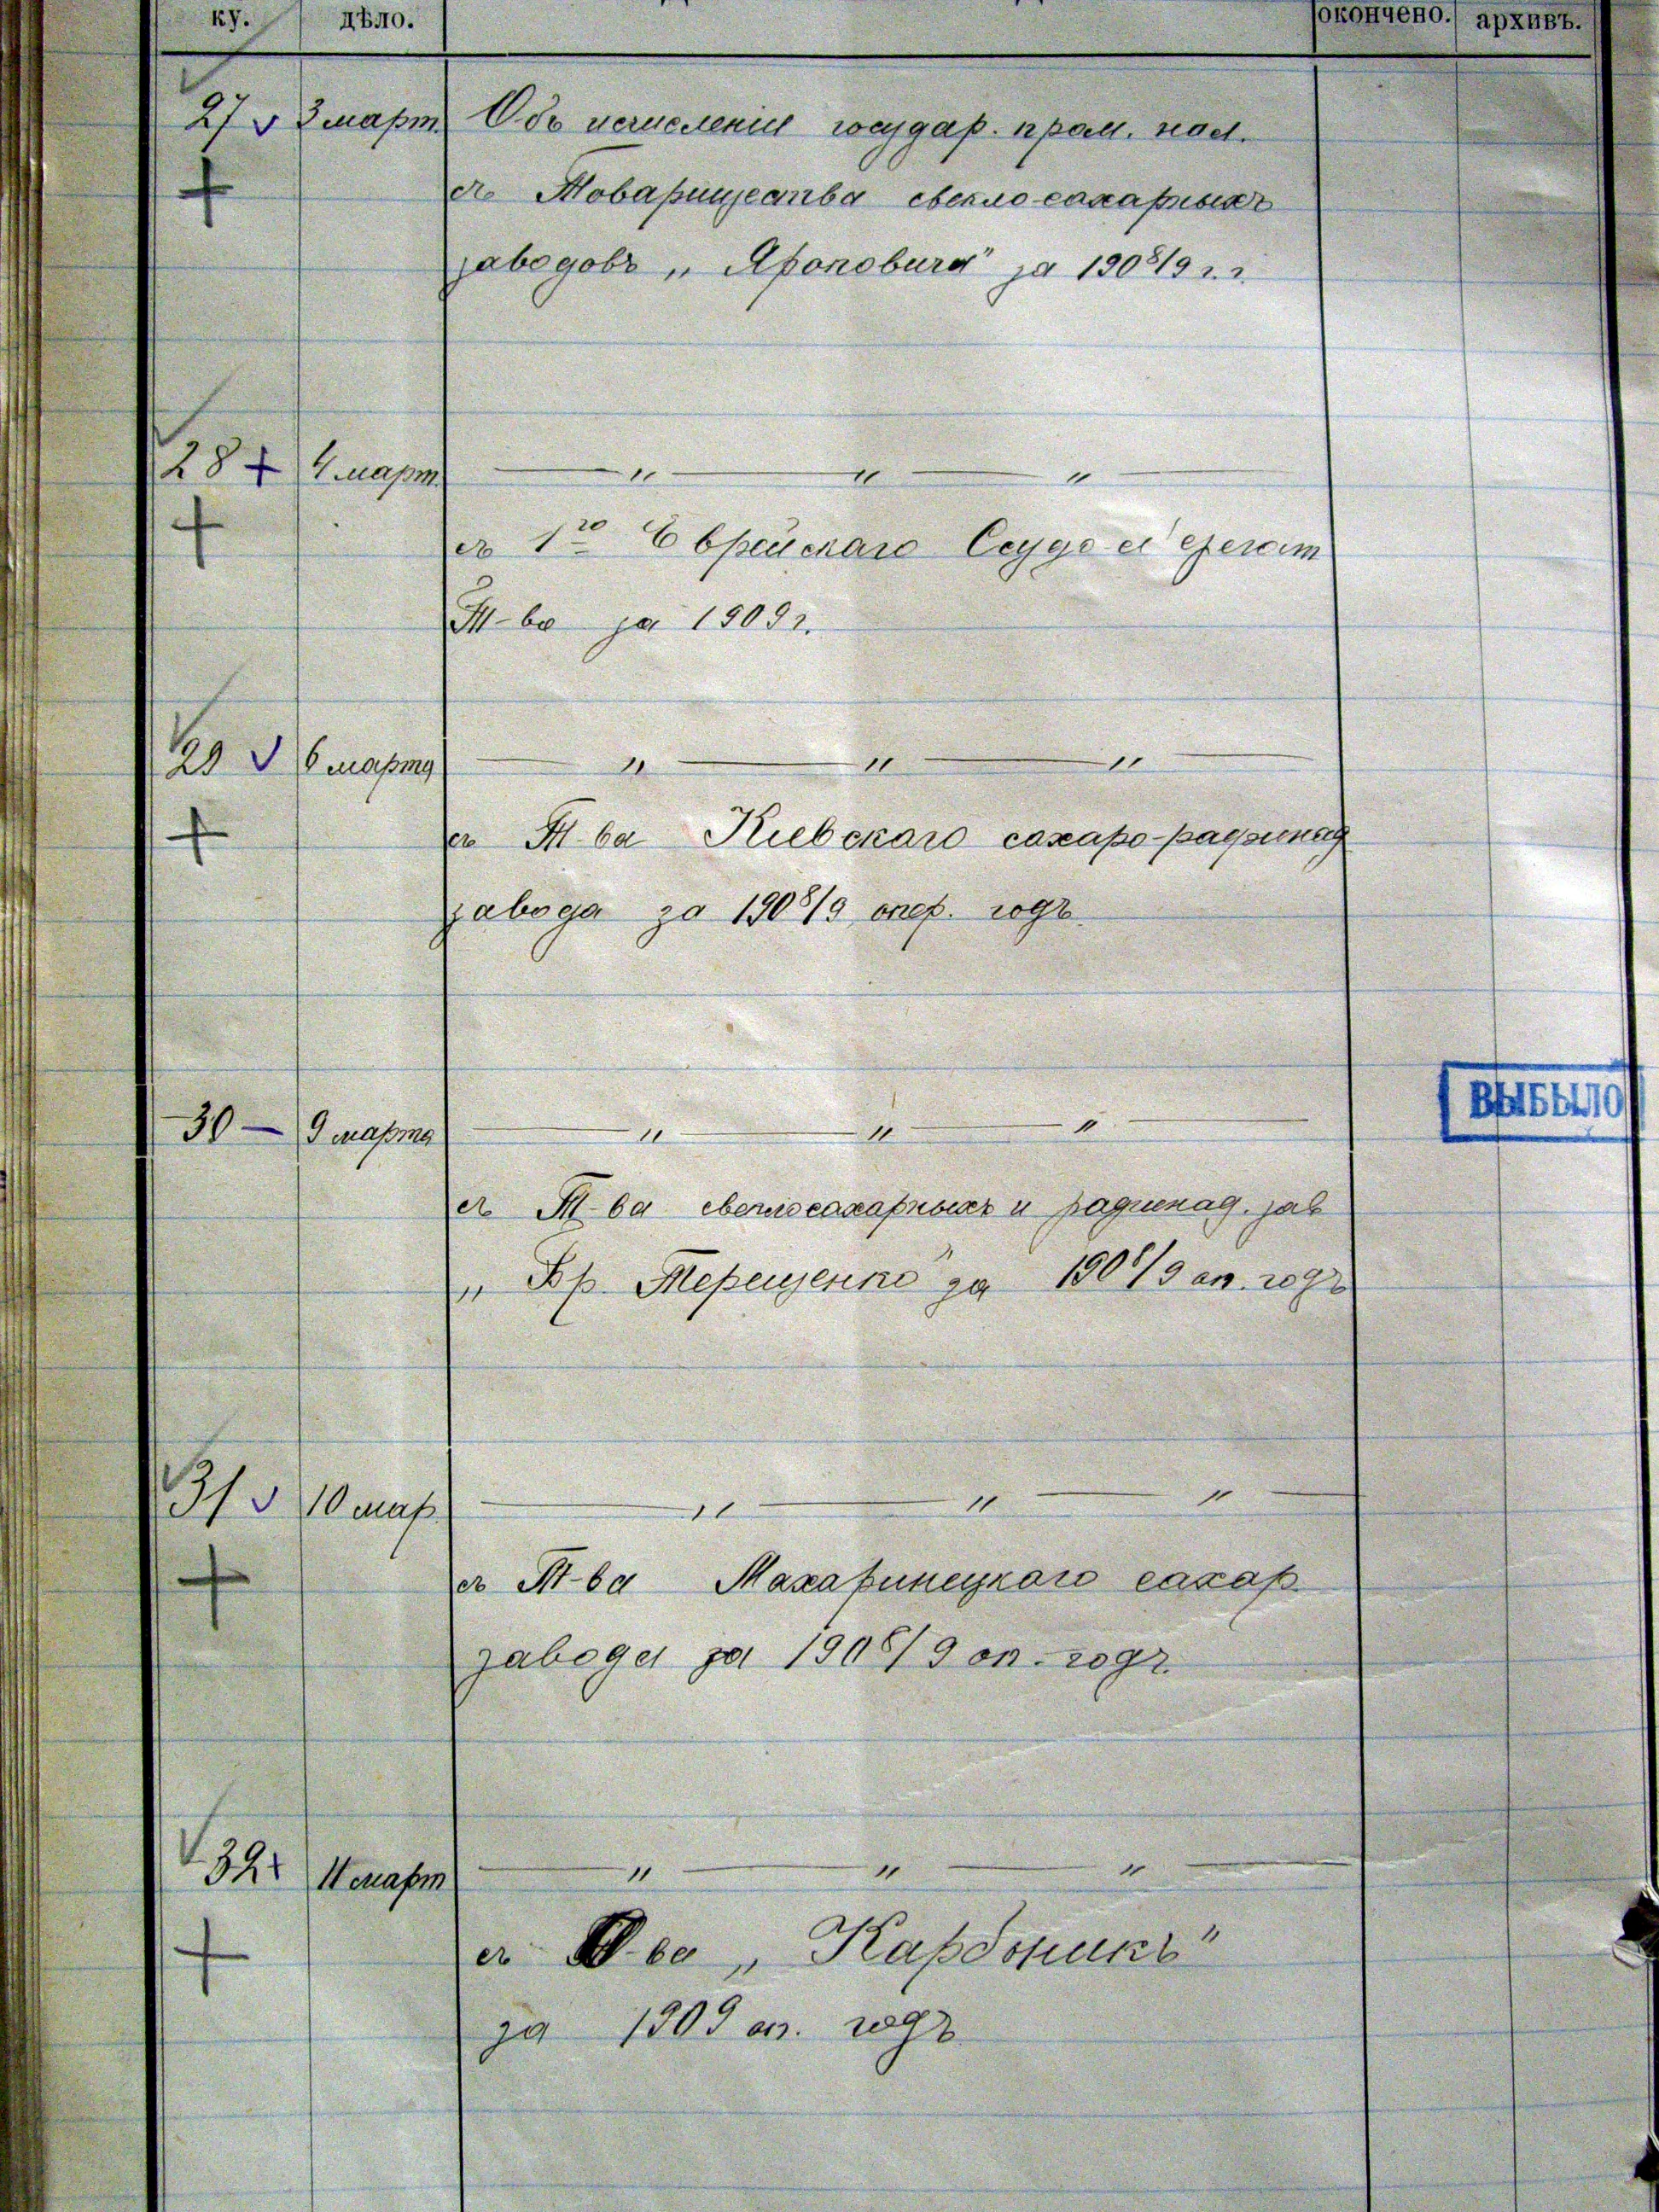 ку. дѣло. окончено. архивъ.
27 v 3 март. Объ исчисленіи государ. пром. нал.
+ съ Товарищества свекло-сахарныхъ
заводовъ „Яроповичи" за 1908/9 г.г.
28 + 4 март. — " — " — " —
+ съ 1го Еврейскаго Ссудо-сберегат
Т-ва за 1909 г.
29 v 6 марта — " — " — " —
+ съ Т-ва Кіевскаго сахаро-рафинад
завода за 1908/9 опер. годъ.
30 — 9 марта — " — " — " —
ВЫБЫЛО
съ Т-ва свеклосахарныхъ и рафинад. зав
„Бр. Терещенко" за 1908/9 оп. годъ
31 v 10 мар. — " — " — " —
+ съ Т-ва Махаринецкаго сахар.
завода за 1908/9 оп. годъ.
32 + 11 март — " — " — " —
+ съ О-ва „Карбоникъ"
за 1909 оп. годъ